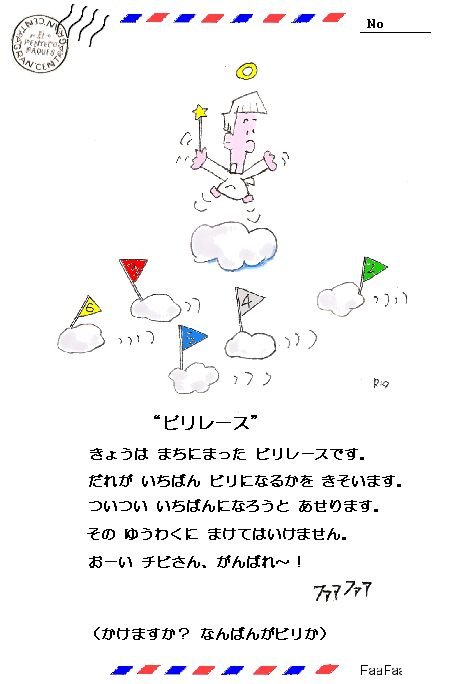 No
6
4
2
“ビリレース”
きょうは まちにまった ビリレースです。
だれが いちばん ビリになるかを きそいます。
ついつい いちばんになろうと あせります。
その ゆうわくに まけてはいけません。
おーい チビさん、がんばれ～！
ファファ
（かけますか？ なんばんがビリか）
FaaFaa